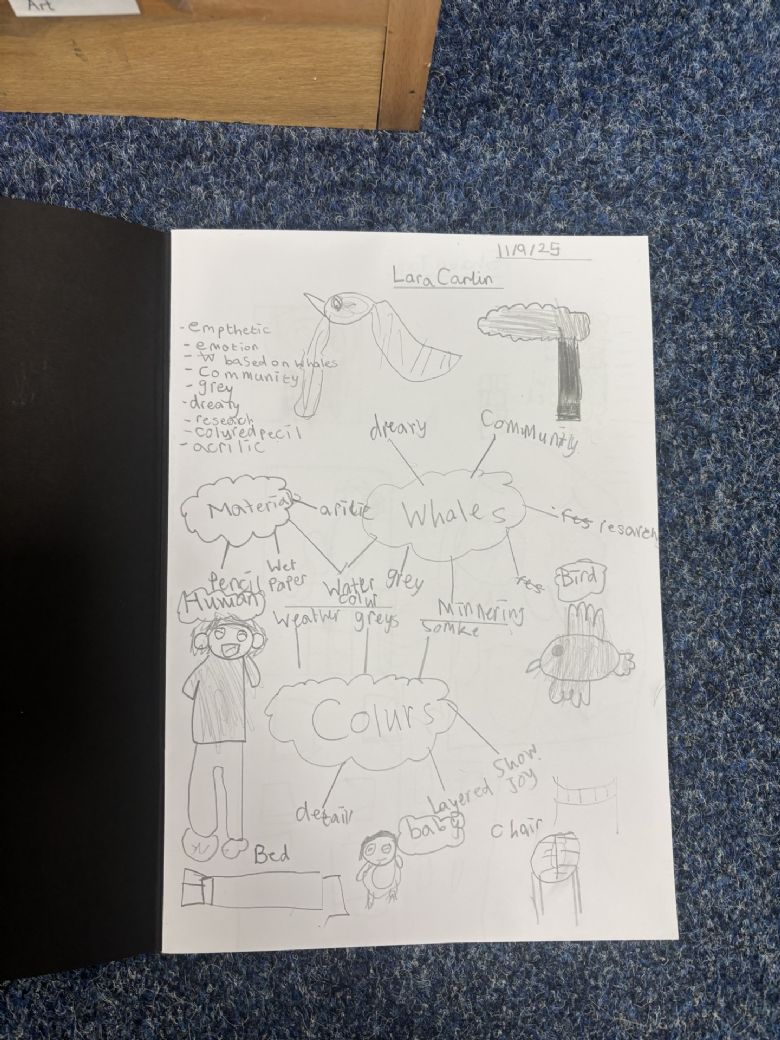 Art
11/9/25
Lara Carlin
- empthetic
- emotion
- W based on whales
- Community
- grey
- dreary
- research
- colyred pecil
- acrilic
dreary
Community
Material
arilic
Whales
resarch
Pencil
Wet
Paper
Water
colur
grey
Minnering
Bird
Human
Weather
greys
Somke
Colurs
Show
Joy
Layered
detail
baby
chair
Bed